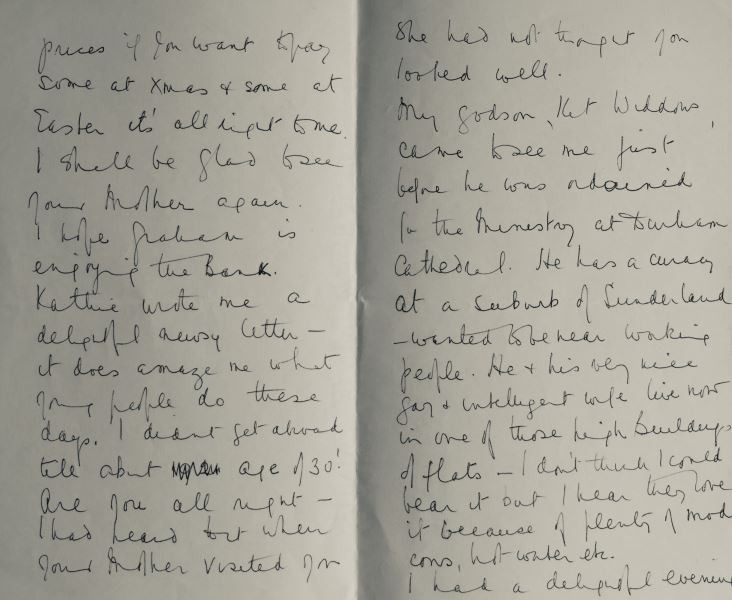 prices if you want to pay
some at Xmas & some at
Easter it's all right to me.
I shall be glad to see
your Mother again.
I hope Graham is
enjoying the Bank.
Kathie wrote me a
delightful newsy letter –
it does amaze me what
young people do these
days. I didnt get abroad
till about age of 30!
Are you all right –
I had heard that when
your Mother visited you
She had not thought you
looked well.
My godson, Kit Widdows,
came to see me just
before he was ordained
to the Ministry at Durham
Cathedral. He has a curacy
at a suburb of Sunderland
– wanted to be near working
people. He & his very nice
gay & intelligent wife live now
in one of those high buildings
of flats – I don't think I could
bear it but I hear they love
it because of plenty of mod
cons, hot water etc.
I had a delightful evening